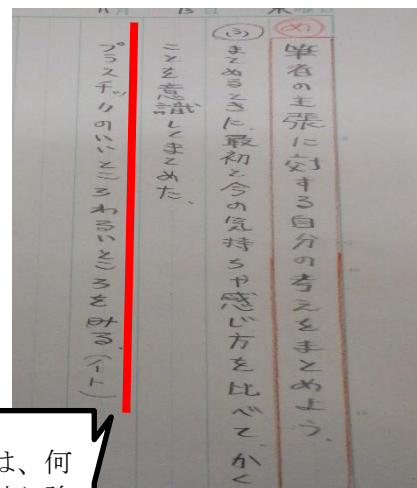 月 日 木曜日
め
筆者の主張に対する自分の考えをまとめよう。
ふ
まとめるときに、最初と今の気持ちや感じ方を比べて、かく
ことを意識してまとめた。
プラスチックのいいところわるいところをみる。(ノート)
は、何